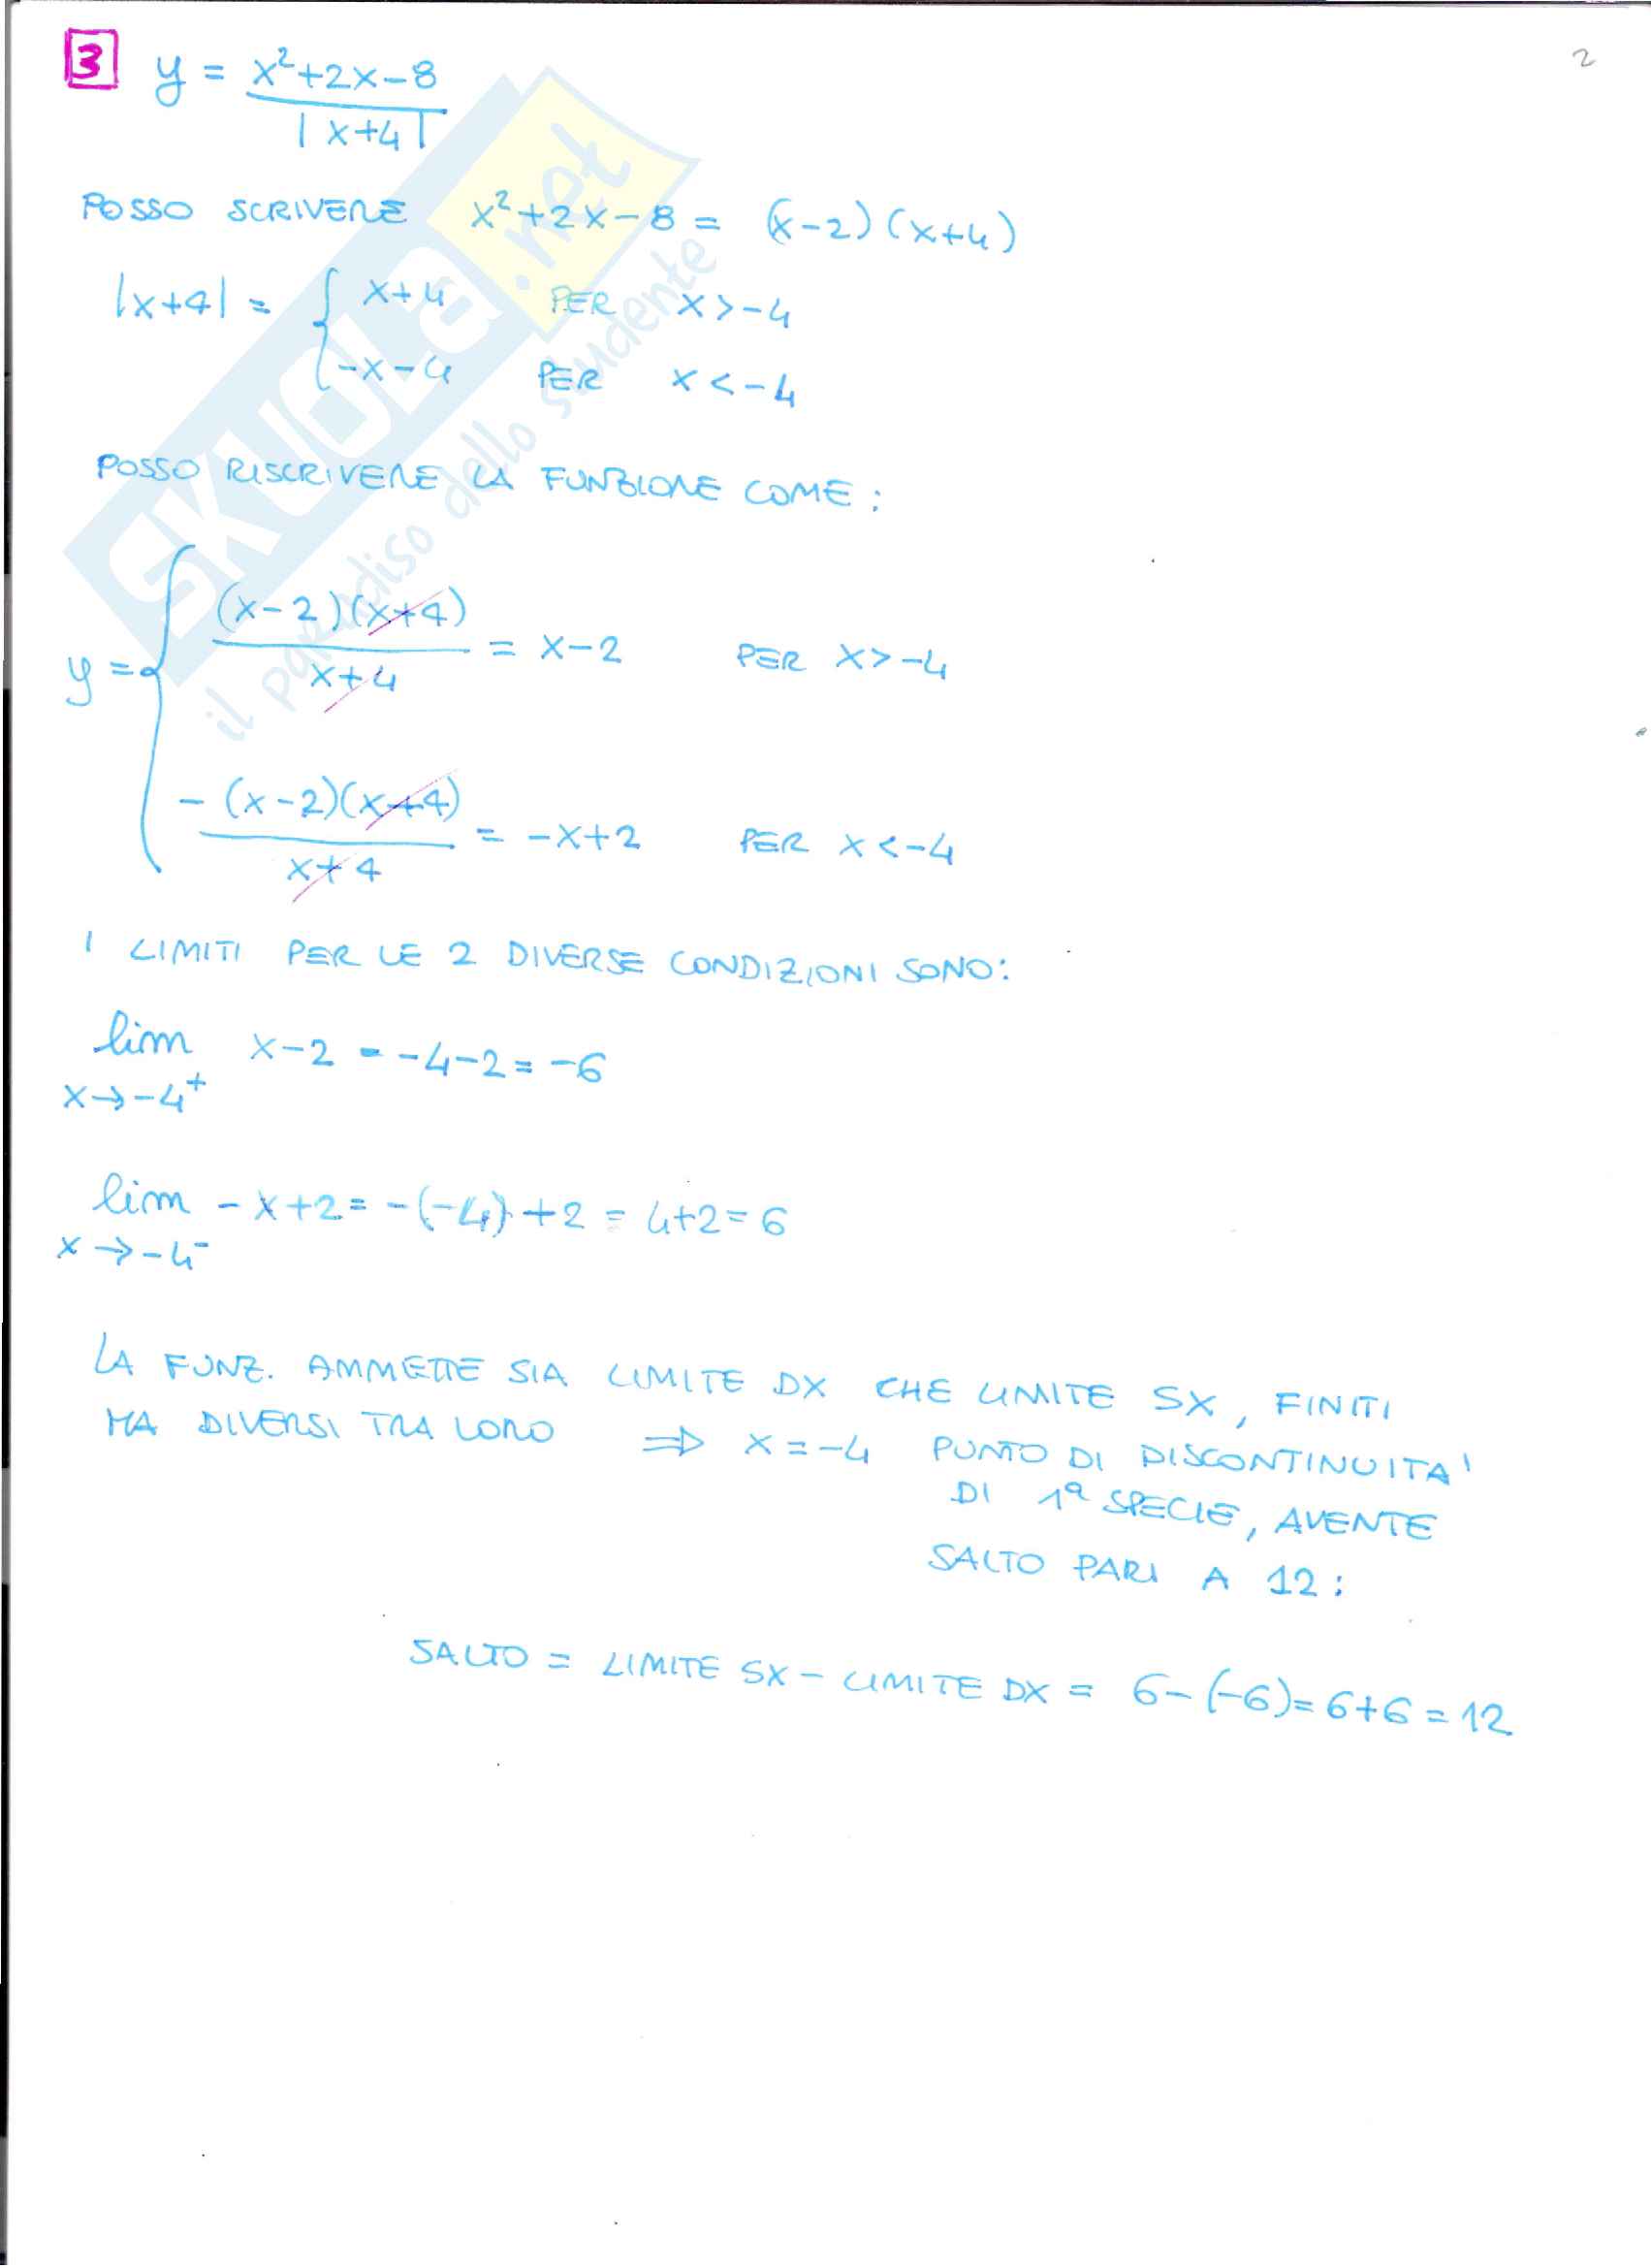 2
3 y = x²+2x-8
|x+4|
POSSO SCRIVERE x²+2x-8 = (x-2)(x+4)
|x+4| = { x+4 PER x>-4
-x-4 PER x<-4
POSSO RISCRIVERE LA FUNZIONE COME:
(x-2)(x+4)
y = { = x-2 PER x>-4
x+4
-(x-2)(x+4)
= -x+2 PER x<-4
x+4
I LIMITI PER LE 2 DIVERSE CONDIZIONI SONO:
lim x-2 = -4-2 = -6
x→-4⁺
lim -x+2 = -(-4)+2 = 4+2 = 6
x→-4⁻
LA FUNZ. AMMETTE SIA LIMITE DX CHE LIMITE SX, FINITI
MA DIVERSI TRA LORO ⇒ x=-4 PUNTO DI DISCONTINUITA'
DI 1ª SPECIE, AVENTE
SALTO PARI A 12:
SALTO = LIMITE SX - LIMITE DX = 6-(-6)=6+6=12
SKUOLA.net
il paradiso dello studente